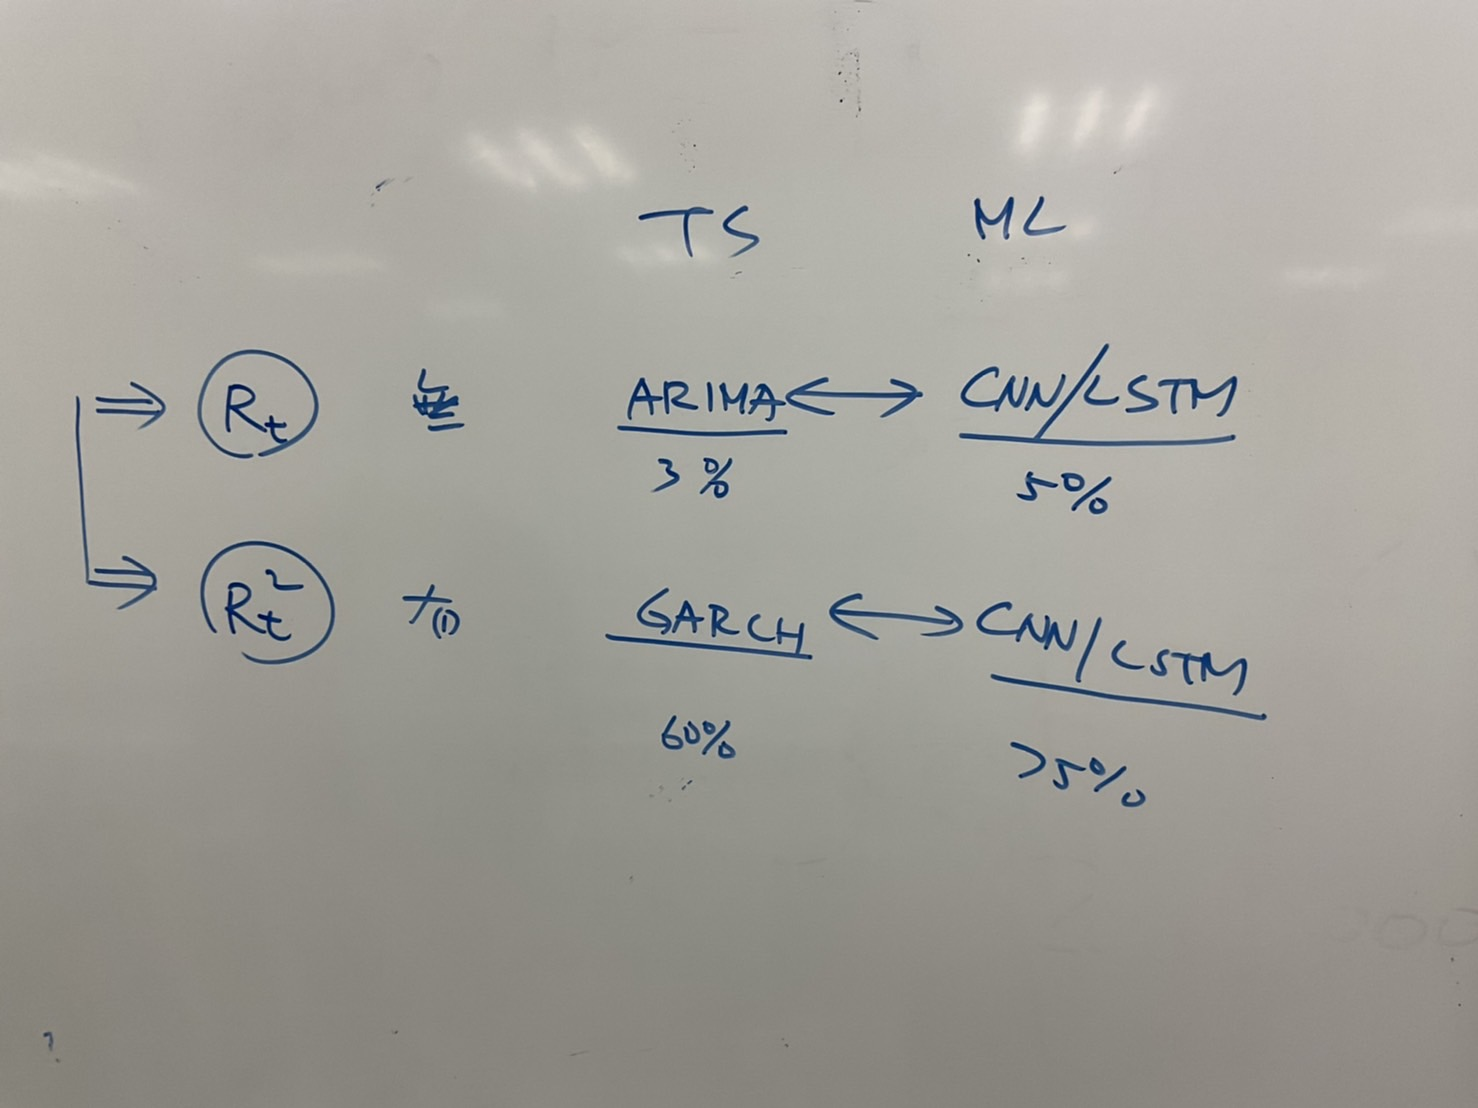 TS ML
R_t 無 ARIMA ↔ CNN/LSTM
3% 5%
R_t² 有 GARCH ↔ CNN/LSTM
60% >5%